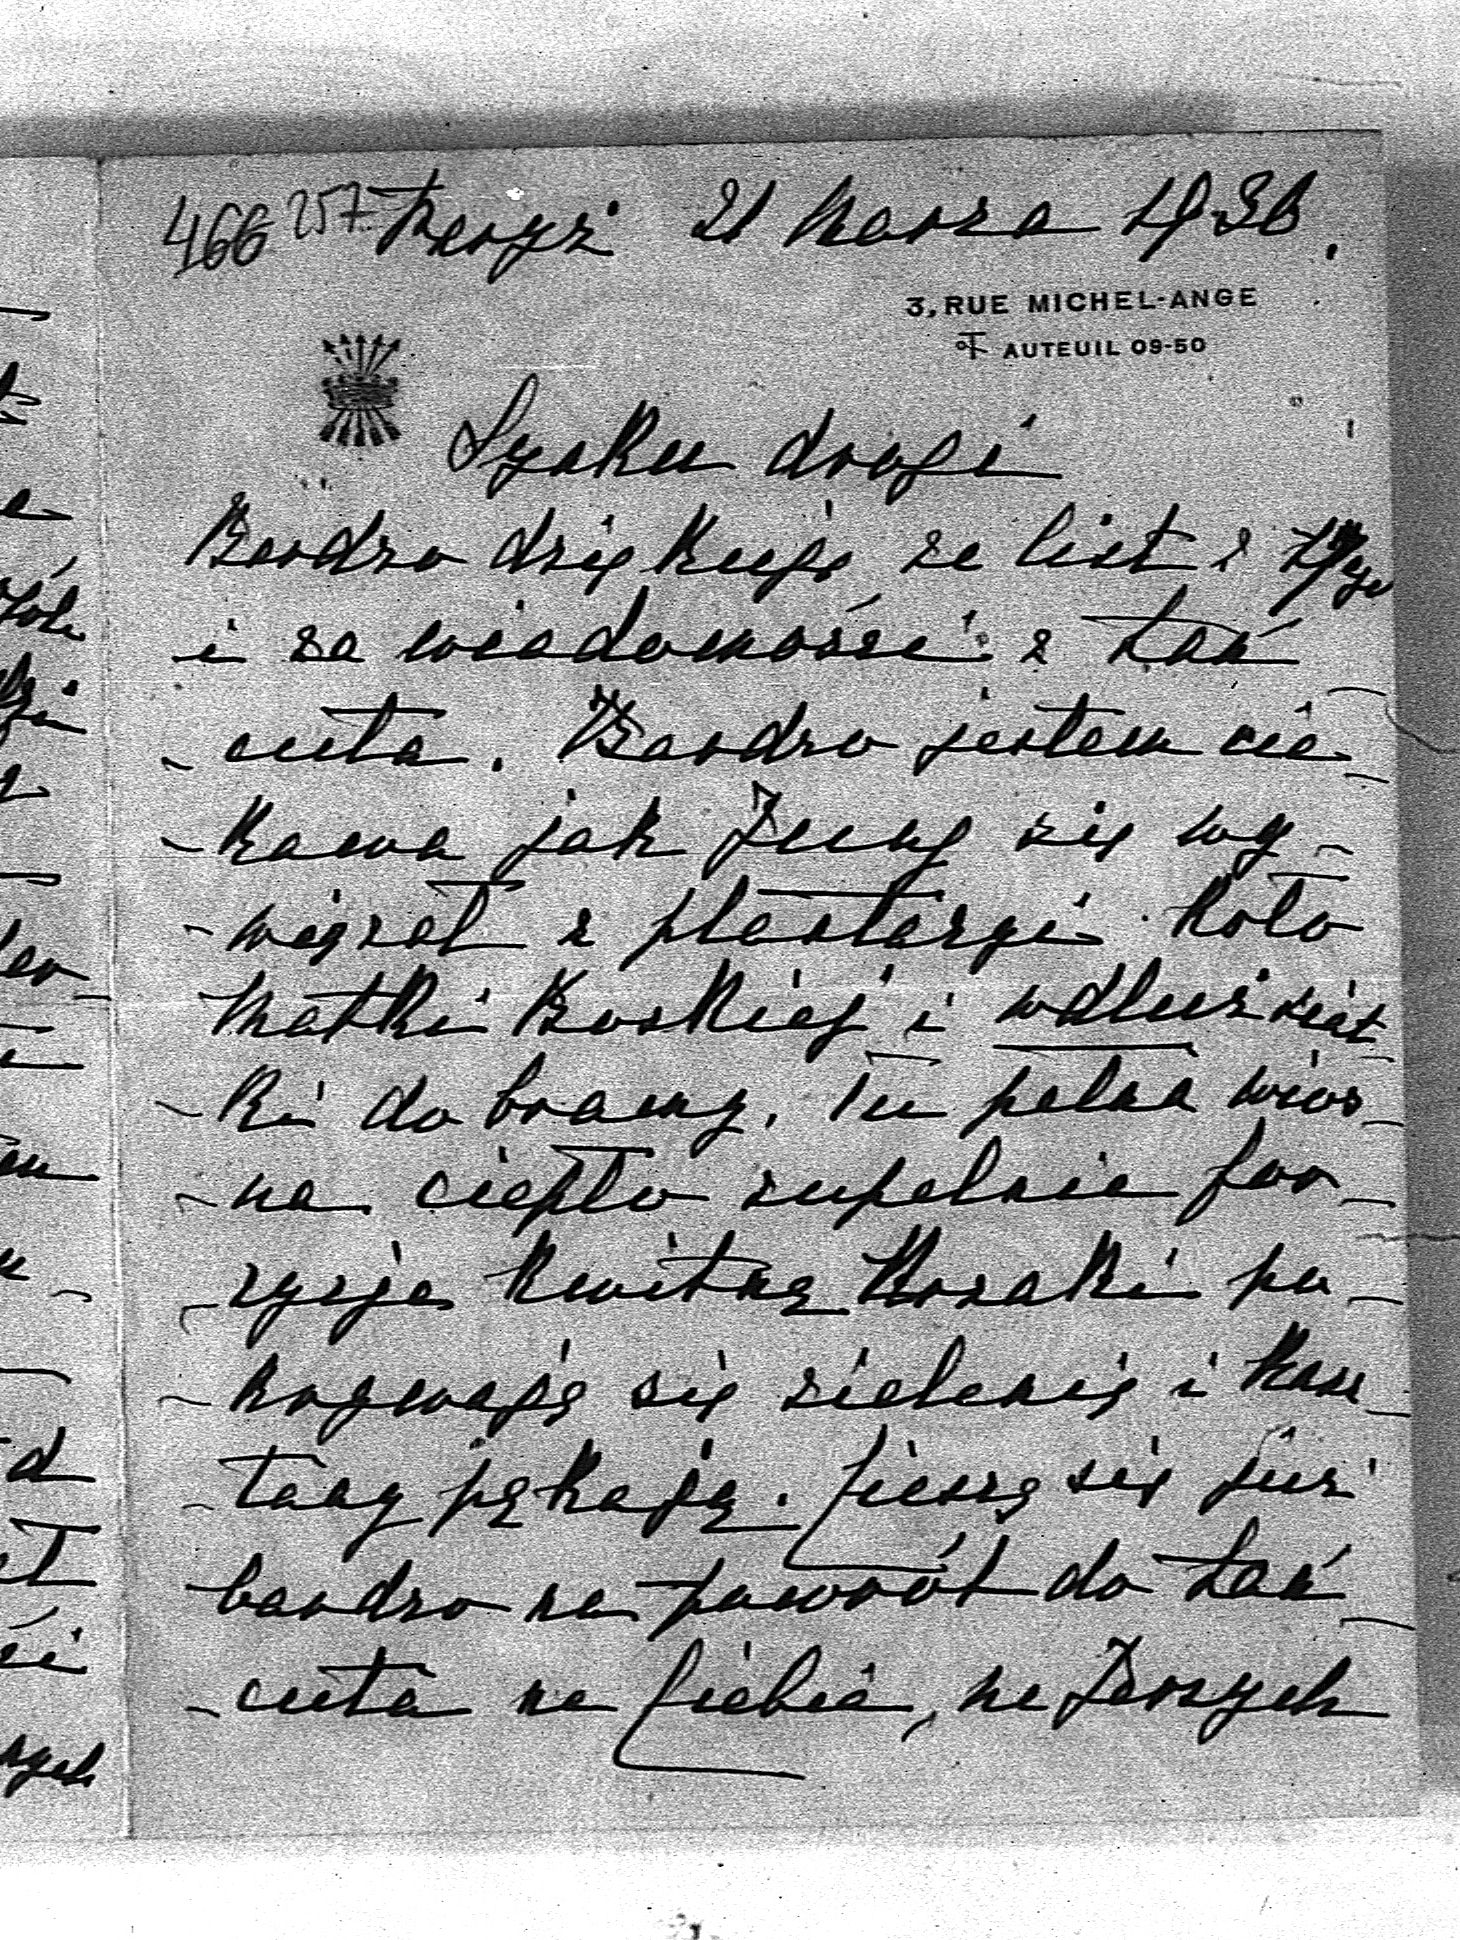 466 257 Paryż 21 Marca 1936.
3, RUE MICHEL-ANGE
AUTEUIL 09-50
Synku drogi
Bardzo dziękuję za list z
i za wiadomości z Łań
- cuta. Bardzo jestem cie-
- kawa jak Jung się wy-
- wiązał z plantacyi koło
Matki Boskiej i wdłuż siat
- ki do bramy. Tu pełna wios-
- na ciepło zupełnie for-
- zycje kwitną krzaki po-
- krywają się zielenią i kasz-
- tany pękają. Cieszę się już
bardzo na powrót do Łań-
- cuta na Ciebie, na Drogich